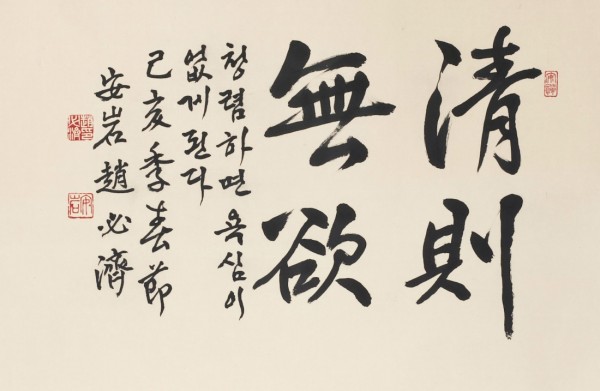 清則
無欲
청렴하면 욕심이
없게된다
己亥季春節
安岩 趙必濟